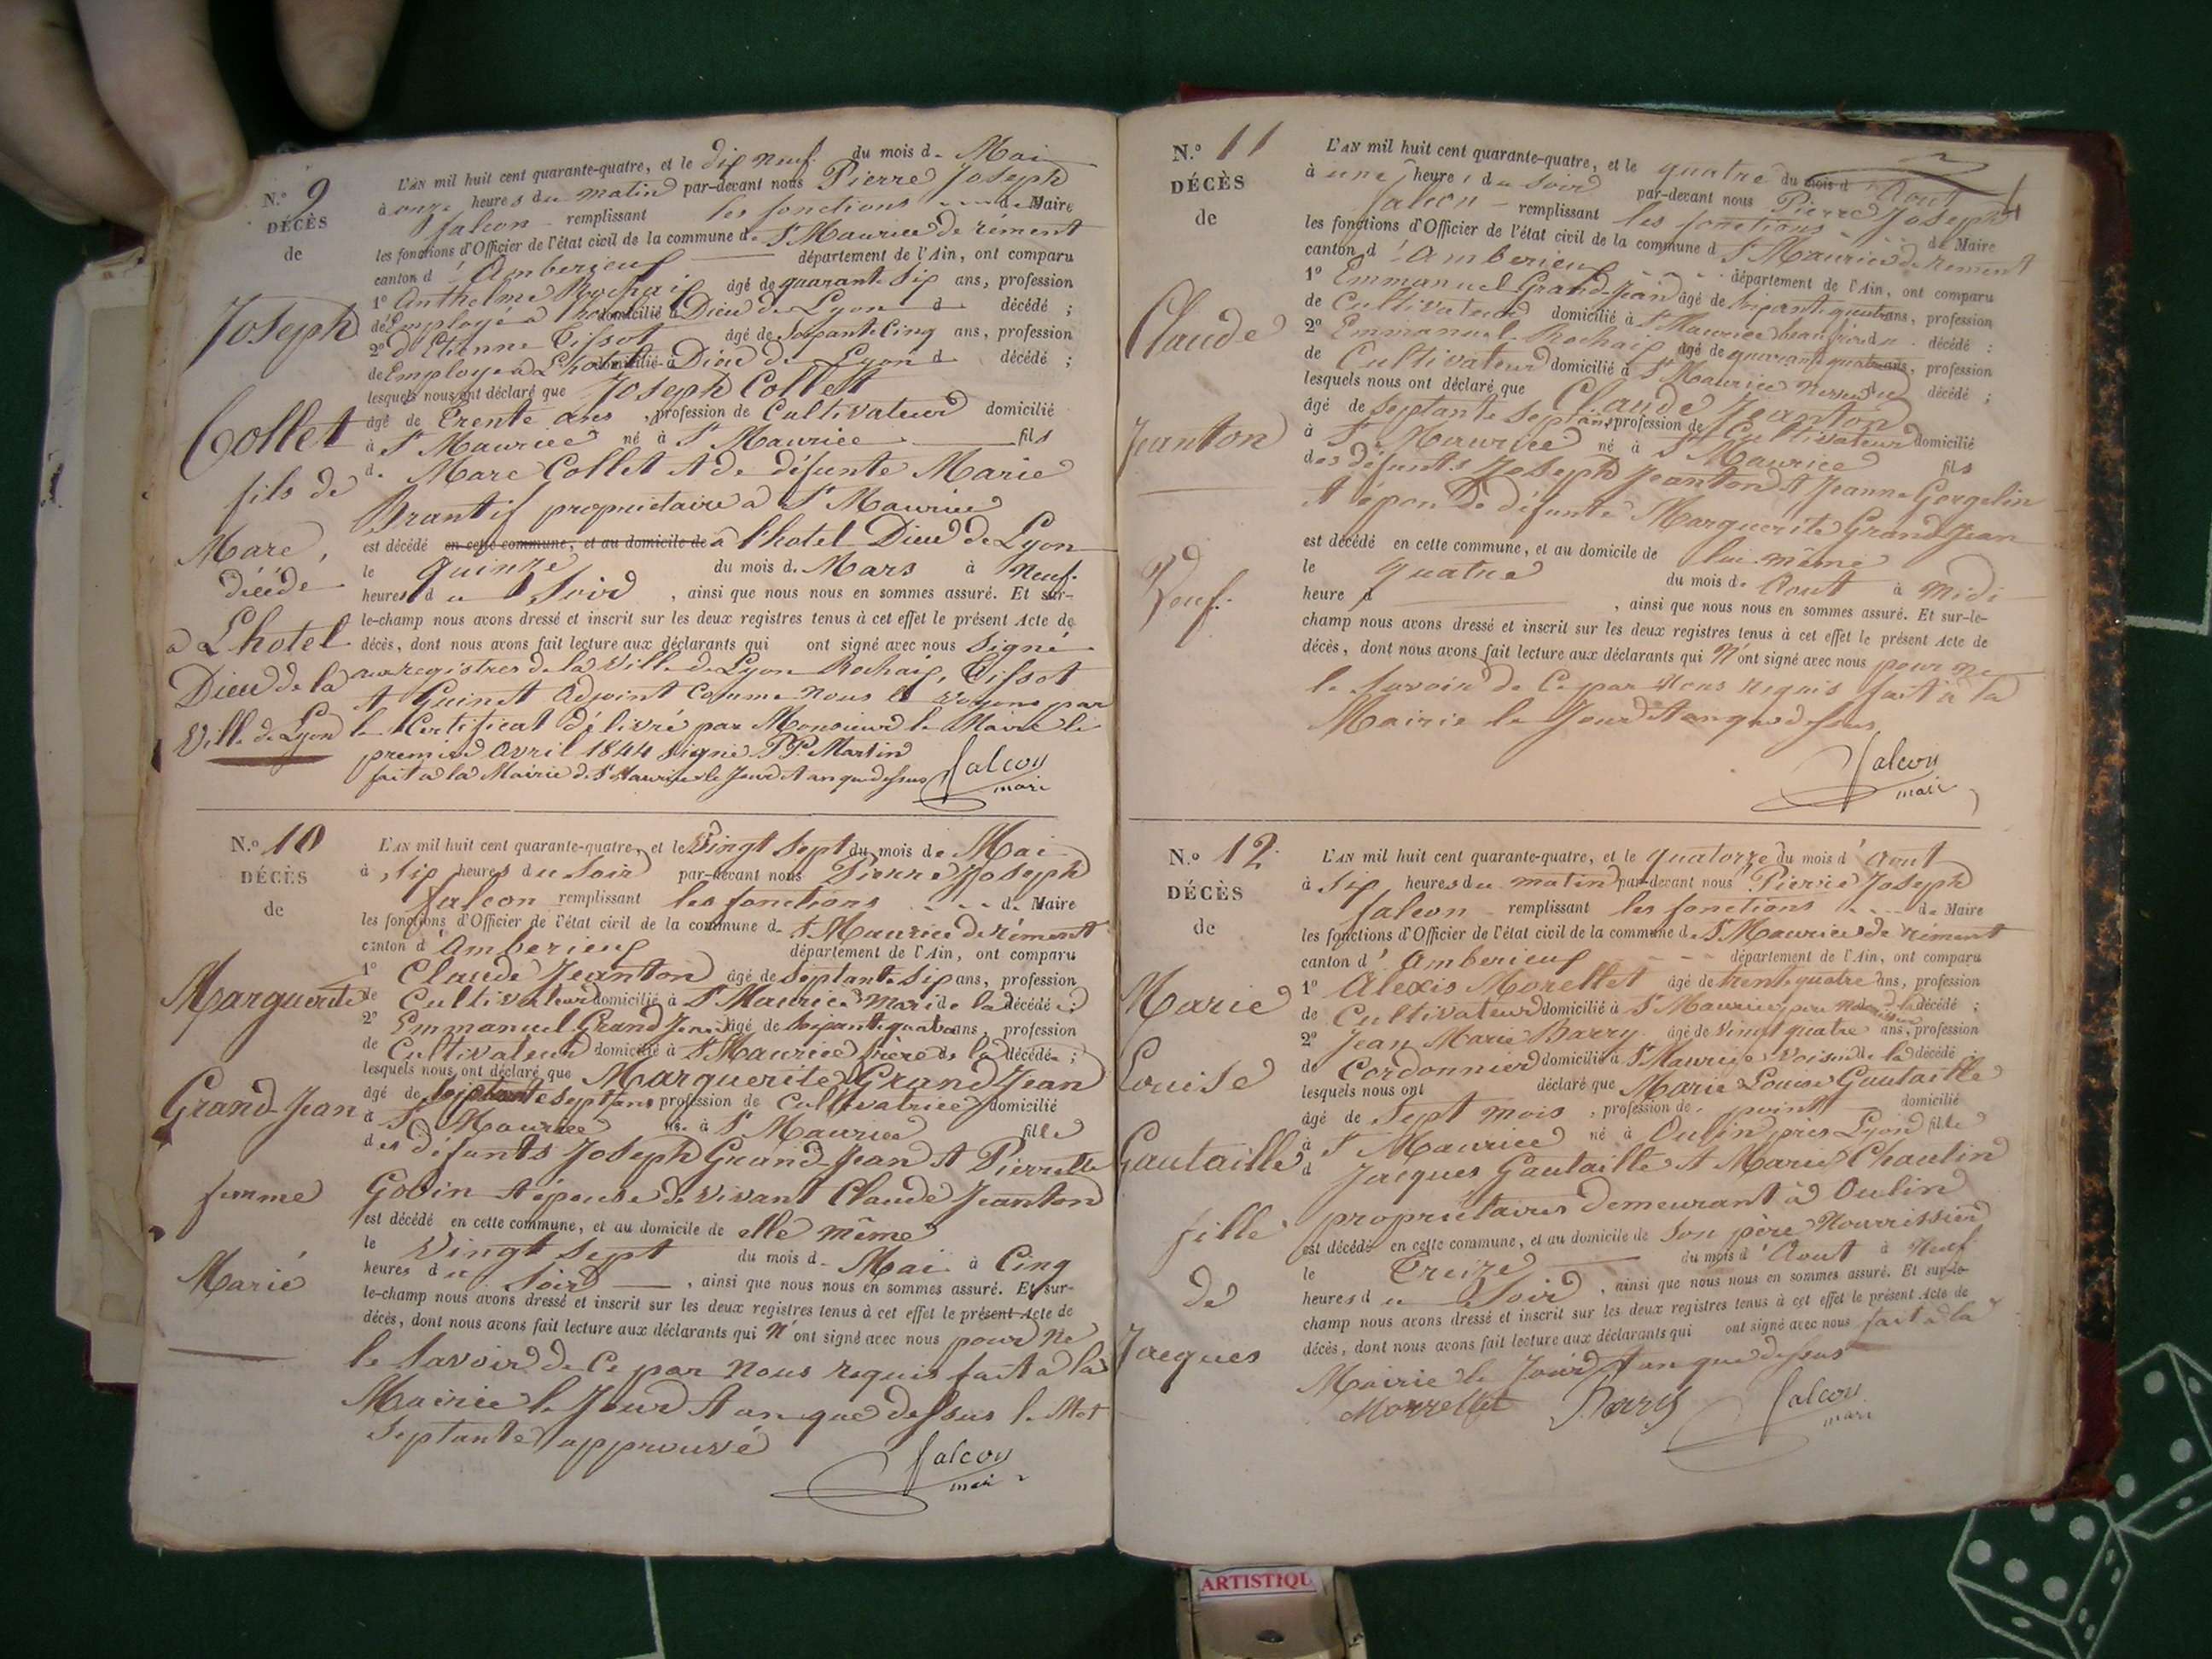 N.o 9
DÉCÈS
de
Joseph
Collet
fils de
Marc,
décédé
a Lhotel
Dieu de la
Ville de Lyon
L'AN mil huit cent quarante-quatre, et le dix neuf du mois de Mai
à onze heures du matin par-devant nous Pierre Joseph
falcon remplissant les fonctions de Maire
les fonctions d'Officier de l'état civil de la commune de St Maurice de rément
canton d'Amberieux département de l'Ain, ont comparu
1o Anthelme Rochaix âgé de quarante six ans, profession
de Employé a l'hotel domicilié à Dieu de Lyon d décédé ;
2o d'Etienne Tissot âgé de soixante Cinq ans, profession
de Employé a L'hotel domicilié à Dieu de Lyon d décédé ;
lesquels nous ont déclaré que Joseph Collet
âgé de trente ans, profession de Cultivateur domicilié
à St Maurice né à St Maurice fils
de Marc Collet et de défunte Marie
Brantif propriétaire a St Maurice
est décédé en cette commune, et au domicile de à l'hotel Dieu de Lyon
le quinze du mois de Mars à Neuf
heures du Soir, ainsi que nous nous en sommes assuré. Et sur-
le-champ nous avons dressé et inscrit sur les deux registres tenus à cet effet le présent Acte de
décès, dont nous avons fait lecture aux déclarants qui ont signé avec nous Signé
aux registres de la Ville de Lyon Rochaix, Tissot
et Guinet adjoint Comme nous le voyons par
le Certificat délivré par Monsieur le Maire le
premier avril 1844 signé P.P. Martin
fait a la Mairie de St Maurice le Jour et an que dessus falcon
mair
N.o 10
DÉCÈS
de
Marguerite
Grand-Jean
femme
Marié
L'AN mil huit cent quarante-quatre, et le Vingt Sept du mois de Mai
à Six heures du Soir par-devant nous Pierre Joseph
falcon remplissant les fonctions de Maire
les fonctions d'Officier de l'état civil de la commune de St Maurice de rément
canton d'Amberieux département de l'Ain, ont comparu
1o Claude Jeanton âgé de septante six ans, profession
de Cultivateur domicilié à St Maurice mari de la décédée ;
2o Emmanuel Grand Jean âgé de soixante quatre ans, profession
de Cultivateur domicilié à St Maurice frère de la décédée ;
lesquels nous ont déclaré que Marguerite Grand Jean
âgé de septante sept ans profession de Cultivatrice domicilié
à St Maurice née à St Maurice fille
des défunts Joseph Grand-Jean et Pierrette
Godin et épouse de vivant Claude Jeanton
est décédé en cette commune, et au domicile de elle même
le Vingt Sept du mois de Mai à Cinq
heures du Soir, ainsi que nous nous en sommes assuré. Et sur-
le-champ nous avons dressé et inscrit sur les deux registres tenus à cet effet le présent Acte de
décès, dont nous avons fait lecture aux déclarants qui N'ont signé avec nous pour ne
le Savoir de Ce par nous requis fait a la
Mairie le Jour et an que dessus le Mot
Septante approuvé
falcon
mair
N.o 11
DÉCÈS
de
Claude
Jeanton
Veuf
L'AN mil huit cent quarante-quatre, et le quatre du mois d'Aout
à une heure, du Soir par-devant nous Pierre Joseph
falcon remplissant les fonctions de Maire
les fonctions d'Officier de l'état civil de la commune d St Maurice de rément
canton d'Amberieux département de l'Ain, ont comparu
1o Emmanuel Grand-Jean âgé de soixante quatre ans, profession
de Cultivateur domicilié à St Maurice beau frère du décédé :
2o Emmanuel Rochaix âgé de quarante quatre ans, profession
de Cultivateur domicilié à St Maurice neveu du décédé ;
lesquels nous ont déclaré que Claude Jeanton
âgé de septante Sept ans profession de Cultivateur domicilié
à St Maurice né à St Maurice fils
des défunts Joseph Jeanton et Jeanne Gorgelin
et époux de défunte Marguerite Grand Jean
est décédé en cette commune, et au domicile de lui même
le quatre du mois de Aout à Midi
heure d, ainsi que nous nous en sommes assuré. Et sur-le-
champ nous avons dressé et inscrit sur les deux registres tenus à cet effet le présent Acte de
décès, dont nous avons fait lecture aux déclarants qui N'ont signé avec nous pour ne
le Savoir de Ce par Nous requis fait a la
Mairie le Jour et an que dessus
falcon
mair
N.o 12
DÉCÈS
de
Marie
Louise
Gautaille
fille
de
Jacques
L'AN mil huit cent quarante-quatre, et le quatorze du mois d'Aout
à Six heures du matin par-devant nous Pierre Joseph
falcon remplissant les fonctions de Maire
les fonctions d'Officier de l'état civil de la commune de St Maurice de rément
canton d'Amberieux département de l'Ain, ont comparu
1o Alexis Morellet âgé de trente quatre ans, profession
de Cultivateur domicilié à St Maurice père nourrissier de la décédé ;
2o Jean Marie Barry âgé de Vingt quatre ans, profession
de Cordonnier domicilié à St Maurice Voisin de la décédé
lesquels nous ont déclaré que Marie Louise Gautaille
âgé de Sept mois, profession de point domicilié
à St Maurice né à Oulin près Lyon fille
d Jacques Gautaille et Marie Chaulin
propriétaires demeurant à Oulin
est décédée en cette commune, et au domicile de Son père Nourrissier
le Treize du mois d'Aout à Neuf
heures du Soir, ainsi que nous nous en sommes assuré. Et sur-le-
champ nous avons dressé et inscrit sur les deux registres tenus à cet effet le présent Acte de
décès, dont nous avons fait lecture aux déclarants qui ont signé avec nous fait a la
Mairie le Jour et an que dessus
Morrellet Barry falcon
mair
ARTISTIQU